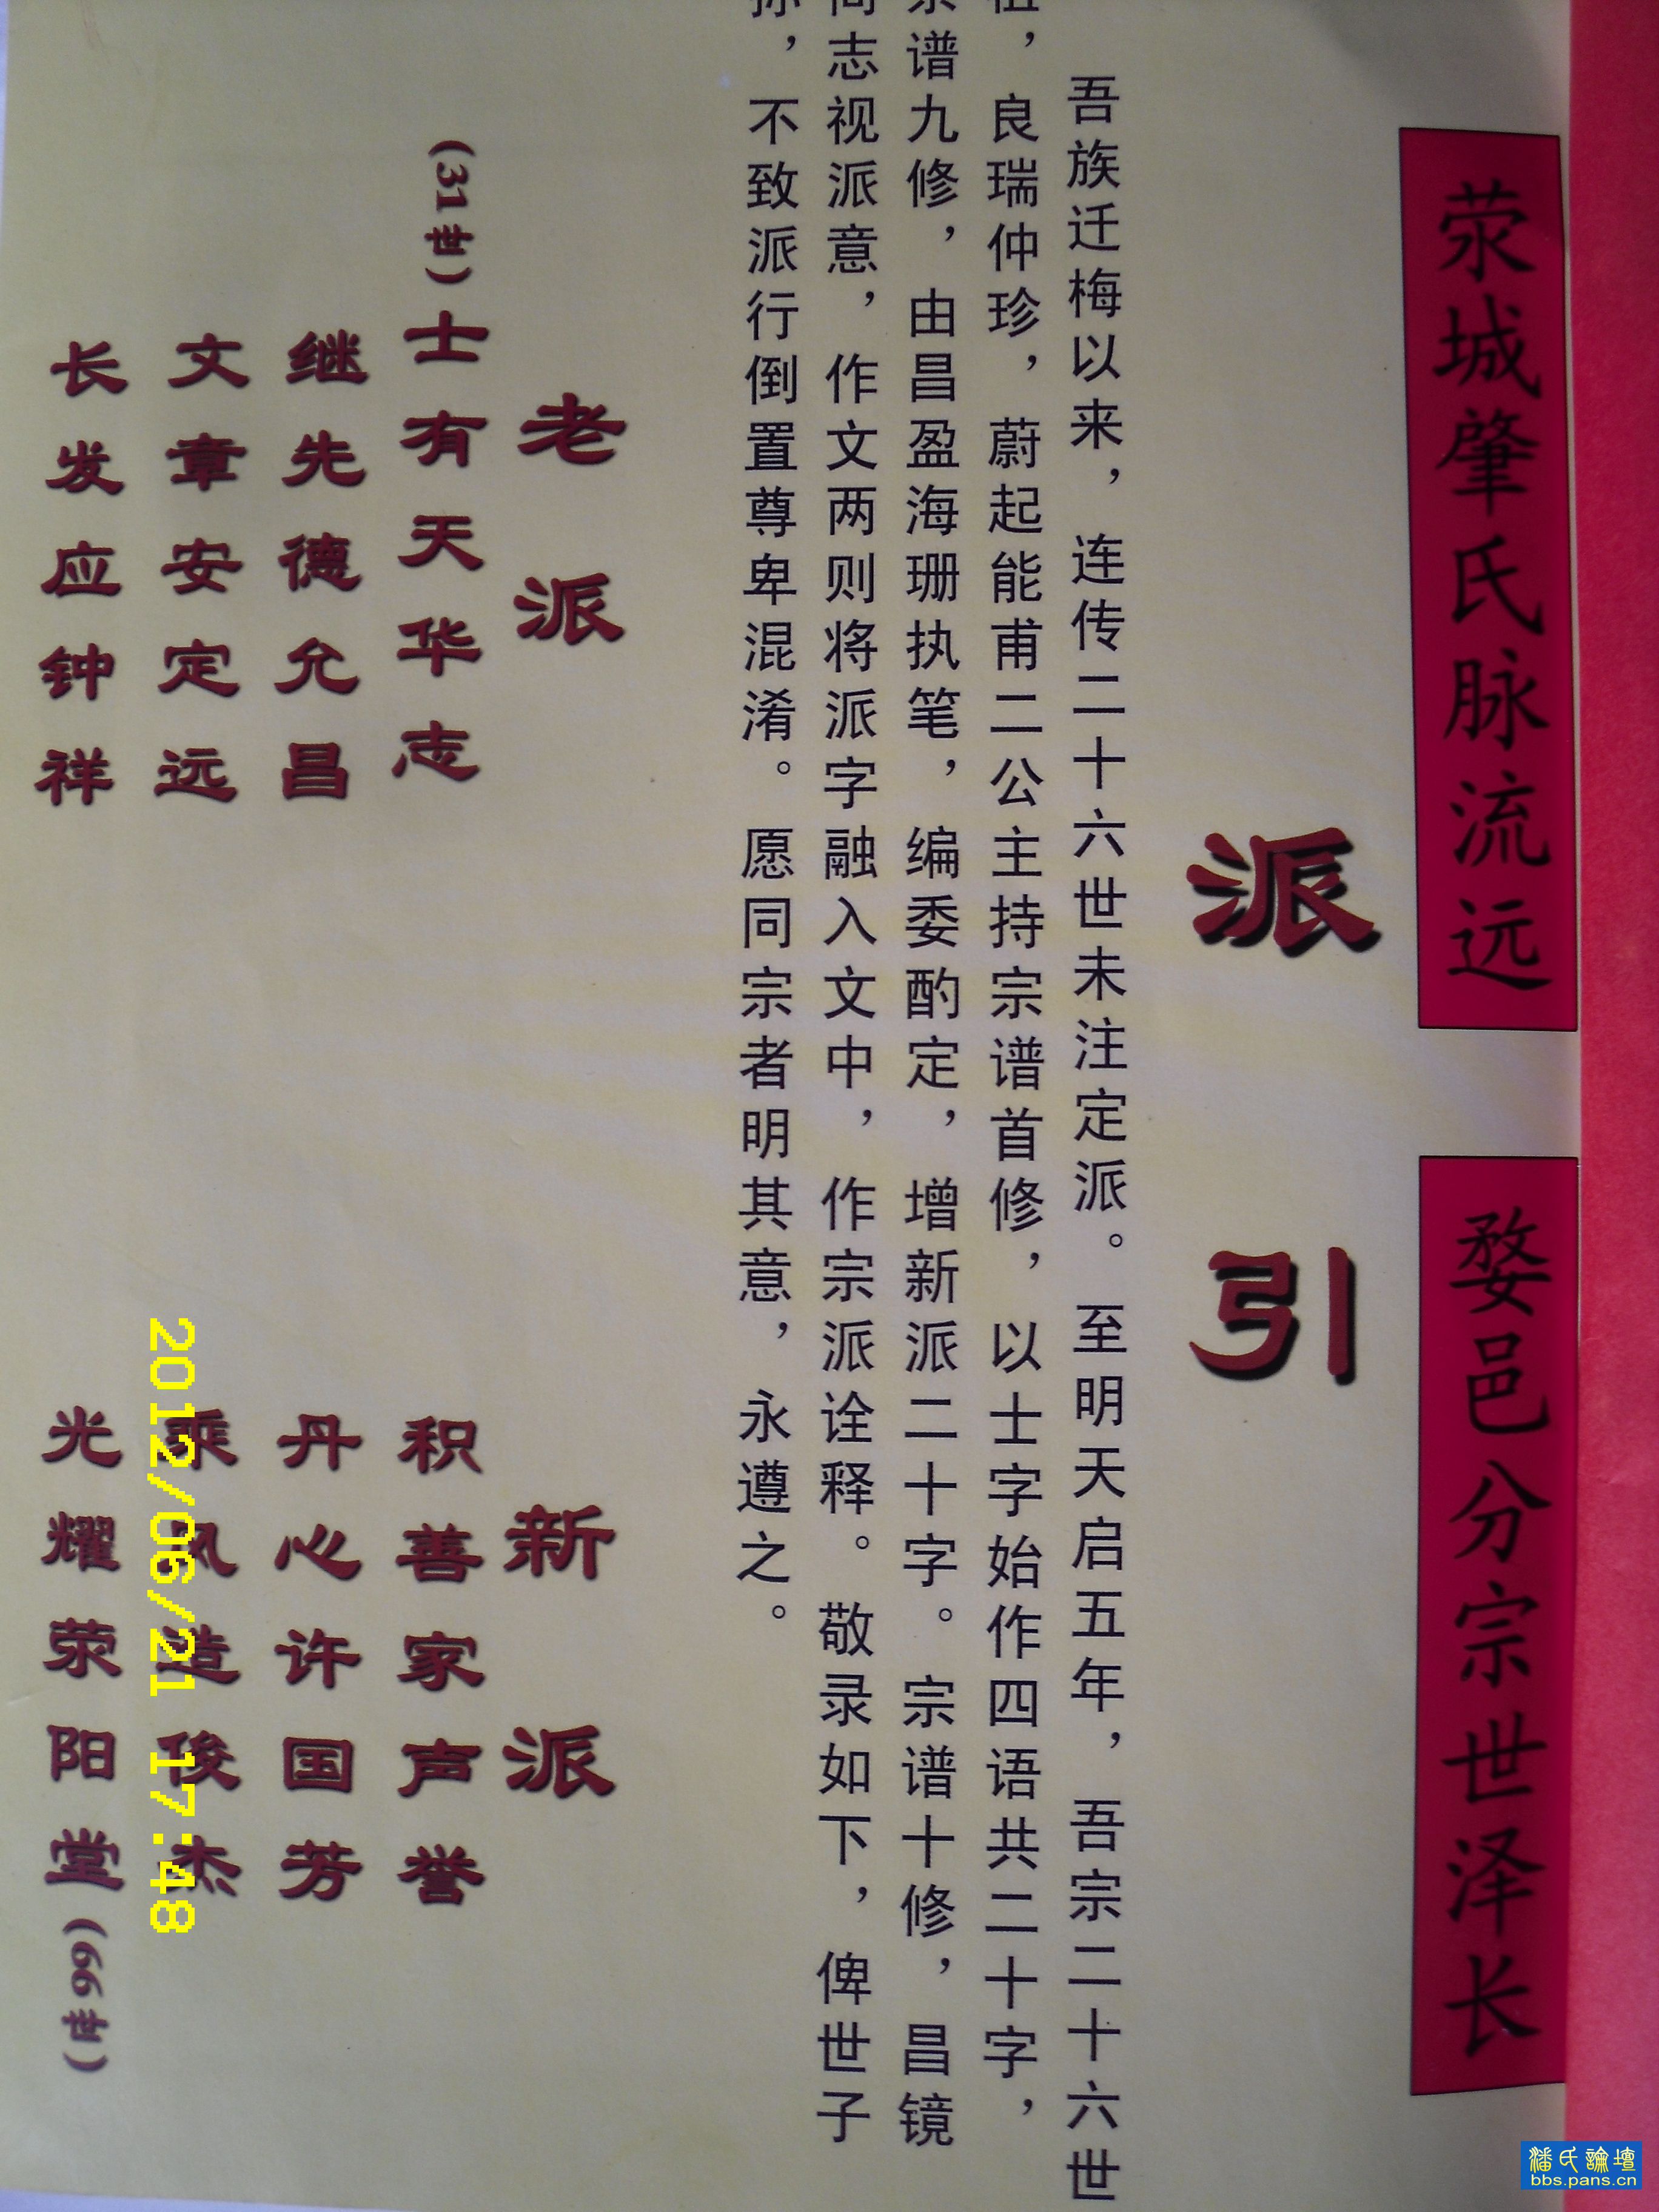 荥城肇氏脉流远
婺邑分宗世泽长
派引
吾族迁梅以来，连传二十六世未注定派。至明天启五年，吾宗二十六世
祖，良瑞仲珍，蔚起能甫二公主持宗谱首修，以士字始作四语共二十字，
宗谱九修，由昌盈海珊执笔，编委酌定，增新派二十字。宗谱十修，昌镜
同志视派意，作文两则将派字融入文中，作宗派诠释。敬录如下，俾世子
孙，不致派行倒置尊卑混淆。愿同宗者明其意，永遵之。
老派
(31世)士有天华志
继先德允昌
文章安定远
长发应钟祥
新派
积善家声誉
丹心许国芳
乘风造俊杰
光耀荥阳堂(66世)
2012/06/21 17:48
潘氏論壇
bbs.pans.cn